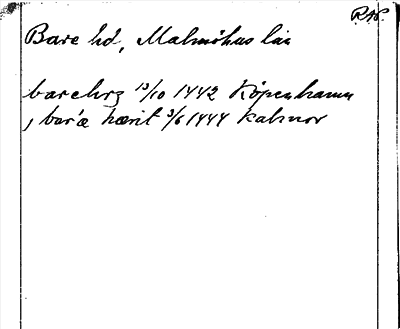 RW.
Bare hd, Malmöhus län
barehrz 13/10 1442 Köpenhamn
, bar'æ hærit 3/6 1444 Kalmar